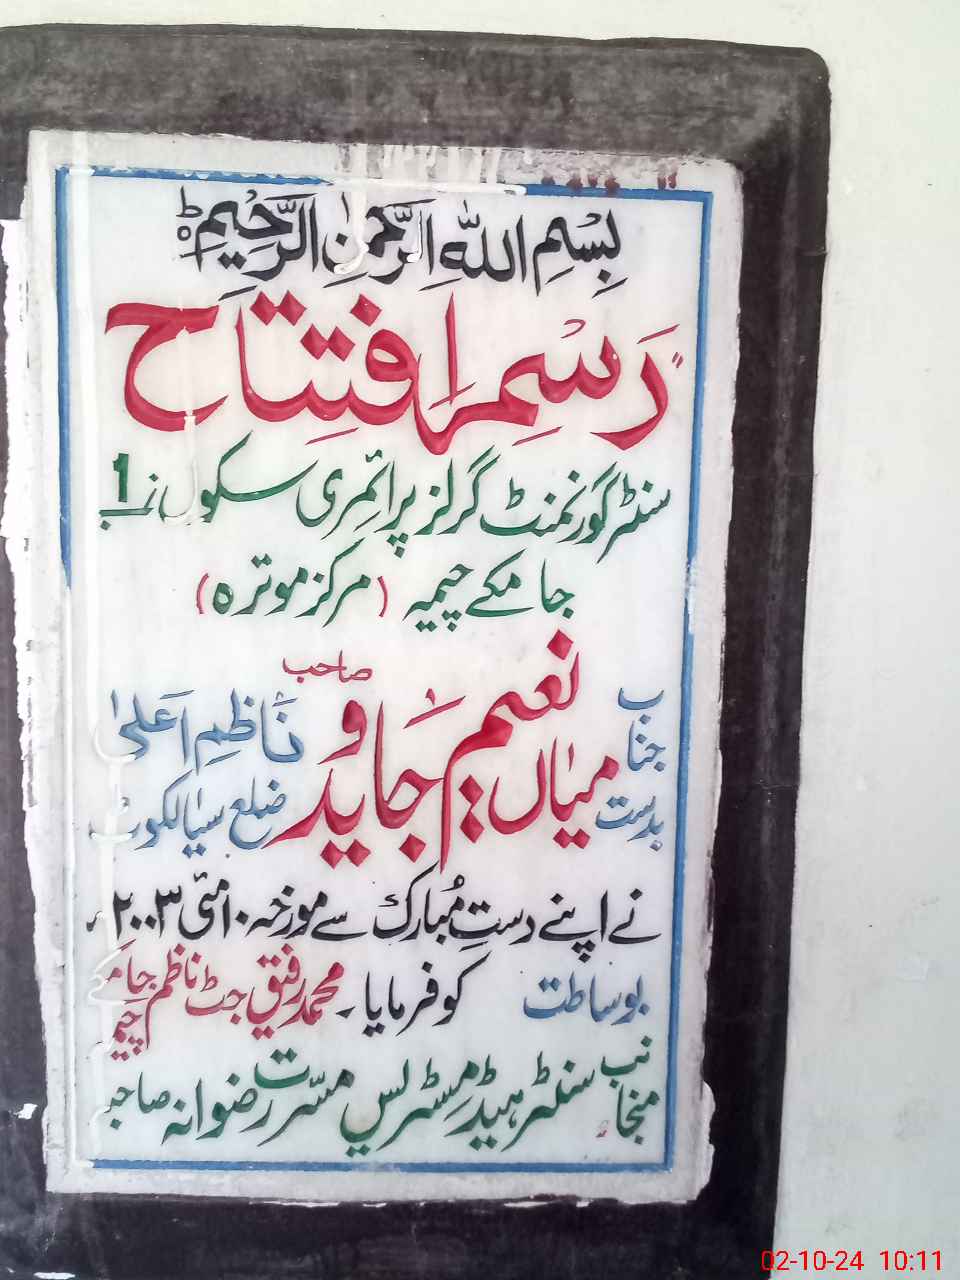 بِسْمِ اللّٰهِ الرَّحْمٰنِ الرَّحِيْمِ ط
رَسمِ اِفتِتَاح
سنٹر گورنمنٹ گرلز پرائمری سکول نمبر 1
جامکے چیمہ (مرکز موترہ)
جناب میاں نعیم جاوید صاحب نَاظمِ اَعلیٰ
بدست ضلع سیالکوٹ
نے اپنے دستِ مُبارک سے مورخہ ۱۰ مئی ۲۰۰۳ء
کو فرمایا۔
بوساطت محمد رفیق جٹ ناظم جامکے چیمہ
منجانب سنٹر ہیڈ مِسٹریس مسّرت رضوانہ صاحبہ
02-10-24 10:11